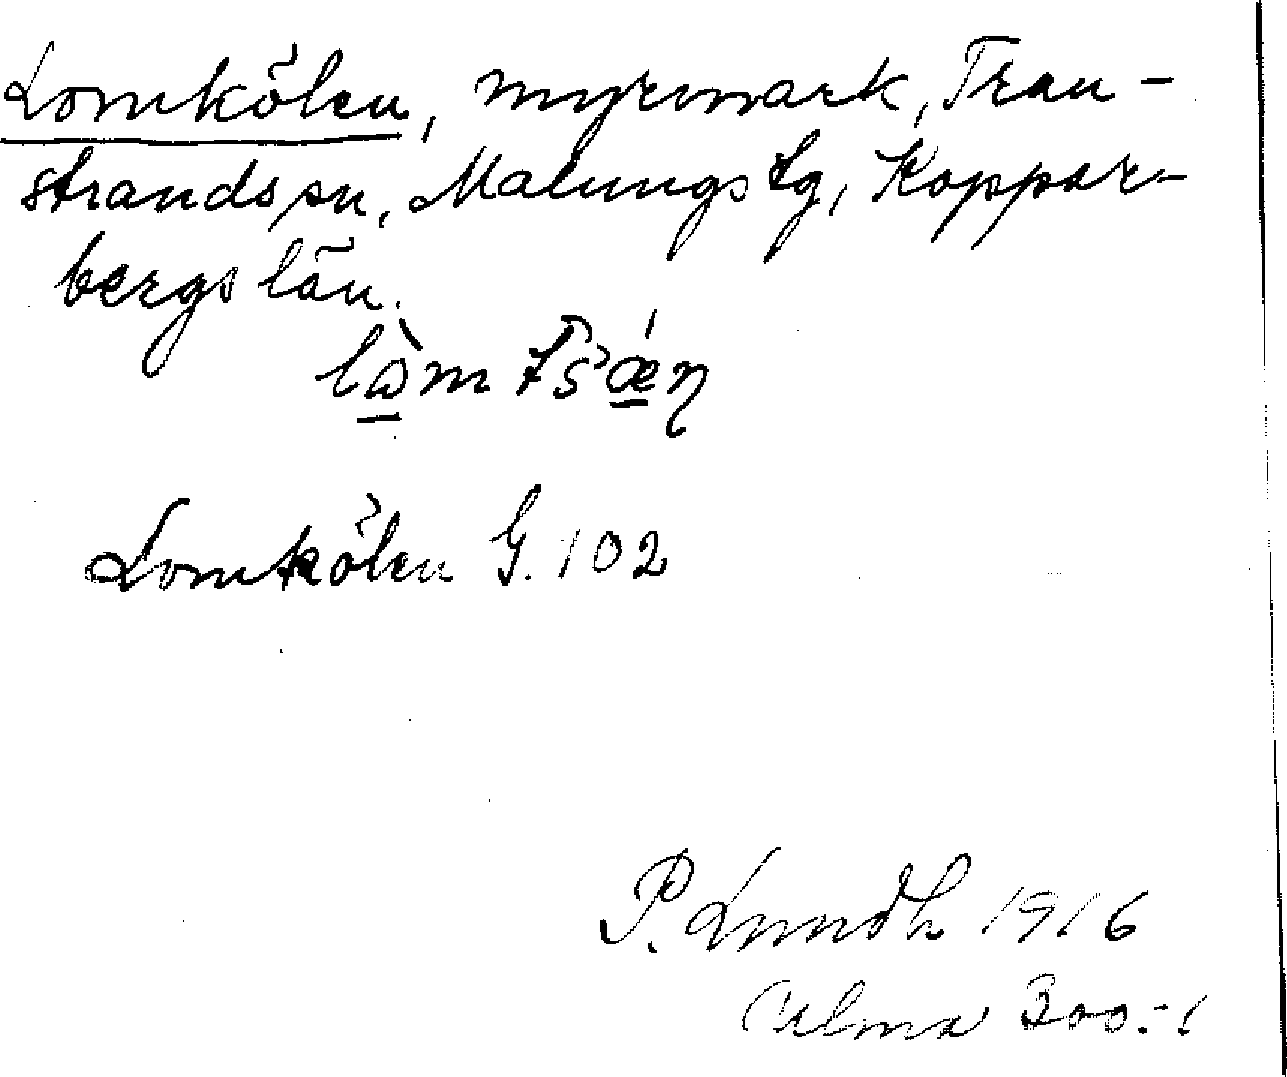 Lomkölen, myrmark, Tran-
strands sn, Malungs tg, Koppar-
bergs län.
Lomkölen G. 102
P. Lundh 1916
Ulma 300:1